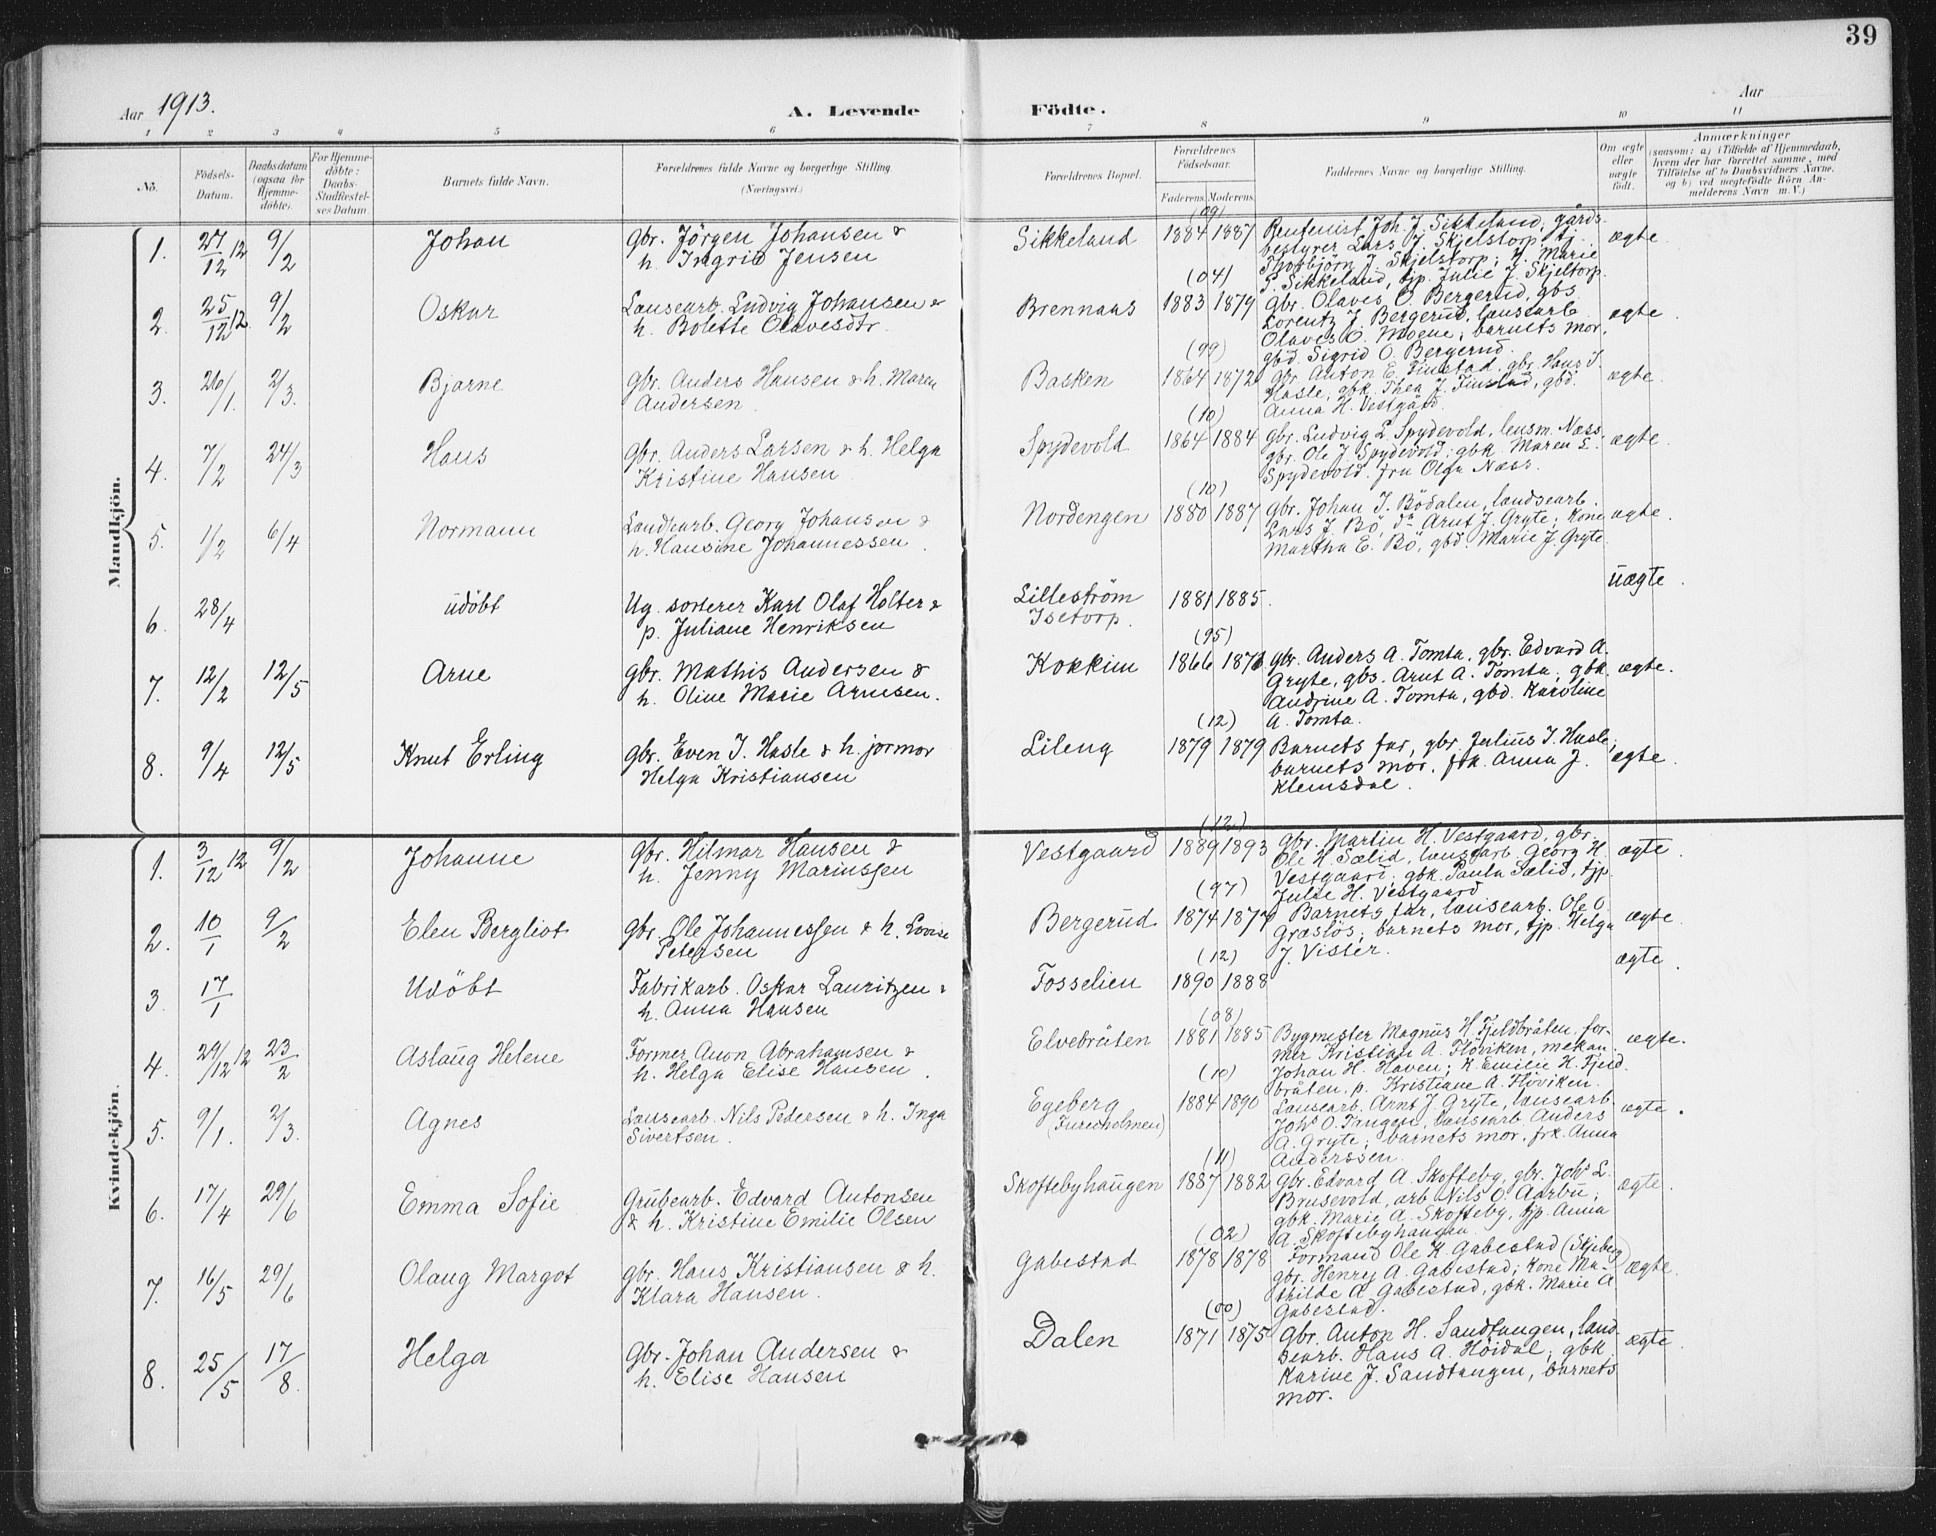 39
Aar 1913. A. Levende Födte. Aar
1 2 3 4 5 6 7 8 9 10 11
No. Födsels-Datum. Daabsdatum (ogsaa for Hjemme-döbte). For Hjemme-döbte: Daabs-Stadfæstel-ses Datum Barnets fulde Navn. Forældrenes fulde Navne og borgerlige Stilling (Næringsvei.) Forældrenes Bopæl. Forældrenes Födselsaar. Faderens Moderens Faddernes Navne og borgerlige Stilling. Om ægte eller uægte födt. Anmærkninger (saasom: a) i Tilfælde af Hjemmedaab, hvem der har forrettet samme, med Tilföielse af to Daabsvidners Navne, og b) ved uægtefödte Börn An-melderens Navn m. V.)
Mandkjön.
1. 27/12 12 9/2 Johan gbr. Jörgen Johansen & h. Ingrid Jensen Sikkeland (09) 1884 1887 Rentenist Joh. J. Sikkeland, gårds-
bestyrer Lars J. Skjelstorp, tj. ægte.
Thorbjörn J. Skjelstorp; k. Marie
P. Sikkeland, tjp. Julie J. Skjeltorp.
2. 25/12 12. 9/2 Oskar Lausearb. Ludvig Johansen & h. Bolette Olavesdtr. Brennaas (04) 1883 1879 gbr. Olaves O. Bergerud, gbs.
Lorentz J. Bergerud, lausearb. ægte.
Olaves O. Moene; barnets mor,
gbd. Sigrid O. Bergerud.
3. 26/1. 2/3. Bjarne gbr. Anders Hansen & h. Maren Andersen Basken (99) 1864 1872 gbr. Anton E. Finstad, gbr. Hans J.
Hasle, gbk. Thea J. Finstad, gbd. ægte.
Anna H. Vestgård.
4. 7/2 24/3 Hans gbr. Anders Larsen & h. Helga Kristine Hansen Spydevold (10) 1864 1884 gbr. Ludvig L. Spydevold, lensm. Næss,
gbr. Ole J. Spydevold; gbk. Maren L. ægte.
Spydevold, fru Olga Næss.
5. 1/2 6/4 Normann Landbearb. Georg Johansen & h. Hansine Johannessen. Nordengen (10) 1880 1887 gbr. Johan J. Bödalen, landsearb.
Lars J. Bö, do Arnt J. Gryte; Kone ægte.
Martha E. Bö, gbd. Marie J. Gryte
6. 28/4 udöbt Ug. sorterer Karl Olaf Holter & p. Juliane Henriksen Lilleström Isetorp. 1881 1885. uægte.
7. 12/2 12/5 Arne gbr. Mathis Andersen & h. Oline Marie Arnesen. Kokkim (95) 1866 1876 gbr. Anders A. Tomta, gbr. Edvard A.
Gryte, gbs. Arnt A. Tomta; gbk. ægte.
Andrine A. Tomta, gbd. Karoline
A. Tomta.
8. 9/4 12/5 Knut Erling gbr. Even J. Hasle & h. jormor Helga Kristiansen Lileng (12) 1879 1879 Barnets far, gbr. Julius J. Hasle;
barnets mor, frk. Anna J. ægte.
Klemsdal.
Kvindekjön.
1. 3/12 12 9/2 Johanne gbr. Hilmar Hansen & h. Jenny Mariussen Vestgaard (12) 1889 1893 gbr. Martin H. Vestgaard, gbr.
Ole H. Sælid, lausearb. Georg H. ægte.
Vestgaard; gbk. Paula Sælid, tjp.
Julie H. Vestgaard
2. 10/1 9/2 Elen Bergliot gbr. Ole Johannessen & h. Lovise Petersen Bergerud (97) 1874 1877 Barnets far, lausearb. Ole O.
Græslös; barnets mor, tjp. Helga ægte
J. Vister.
3. 17/1 Udöbt Fabrikarb. Oskar Lauritzen & h. Anna Hansen Fosselien (12) 1890 1888 ægte.
4. 29/12 12 23/2 Aslaug Helene Former Anon Abrahamsen & h. Helga Elise Hansen. Elvebråten (08) 1881 1885 Bygmester Magnus H. Fjeldbråten, for-
mer Kristian A. Flöviken, mekan. ægte.
Johan H. Haven; K. Emilie K. Fjeld-
bråten, p. Kristiane A. Flöviken.
5. 9/1. 2/3. Agnes Lausearb. Nils Pedersen & h. Inga Sivertsen. Egeberg (Fureholmen) (10) 1884 1890 Lausearb. Arnt J. Gryte, lausearb.
Johs O. Tangen, lausearb. Anders ægte.
A. Gryte; barnets mor, frk. Anna
Anderssen.
6. 17/4 29/6 Emma Sofie Grubearb. Edvard Antonsen & h. Kristine Emilie Olsen Skoftebyhaugen (11) 1887 1882 gbr. Edvard A. Skofteby, gbr. Johs L.
Brusevold, arb. Nils O. Aarbu; ægte.
gbk. Marie A. Skofteby, tjp. Anna
A. Skoftebyhaugen
7. 16/5 29/6 Olaug Margot gbr. Hans Kristiansen & h. Klara Hansen. Gabestad (02) 1878 1878 Formand Ole K. Gabestad (Skjeberg)
gbr. Henry A. Gabestad; kone Ma- ægte.
thilde A. Gabestad, gbk. Marie A.
Gabestad.
8. 25/5 17/8 Helga Gbr. Johan Andersen & h. Elise Hansen Dalen (00) 1871 1875 gbr. Anton H. Sandtangen, land-
bearb. Hans A. Höidal; gbk. ægte.
Karine J. Sandtangen, barnets
mor.